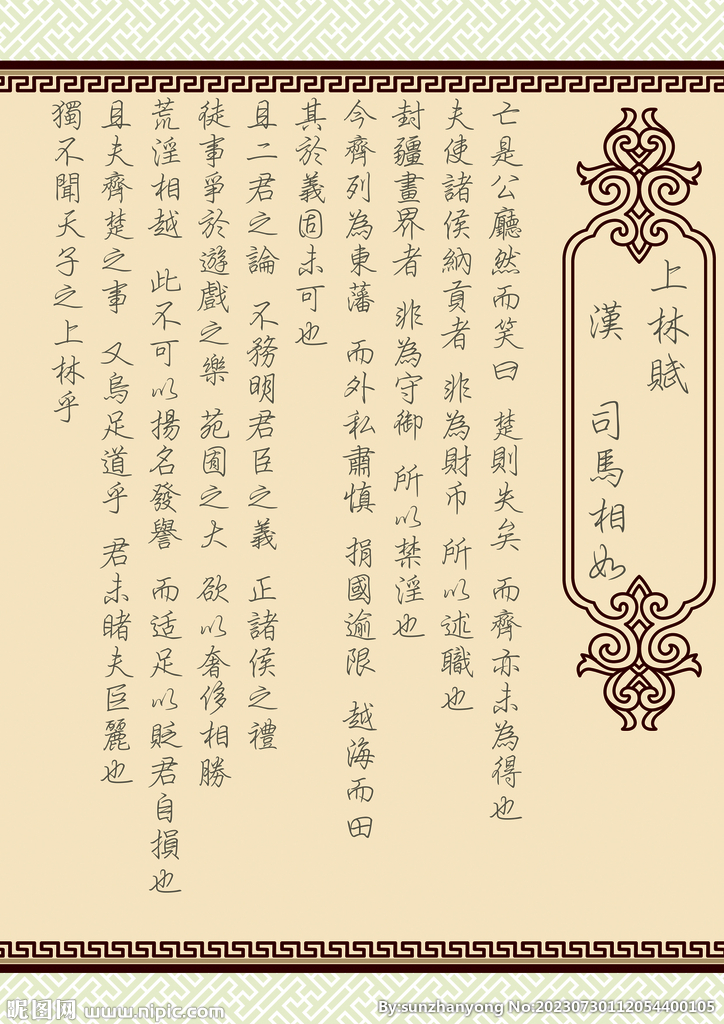 上林賦
漢 司馬相如
亡是公廳然而笑曰 楚則失矣 而齊亦未為得也
夫使諸侯納貢者 非為財币 所以述職也
封疆畫界者 非為守御 所以禁淫也
今齊列為東藩 而外私肅慎 捐國逾限 越海而田
其於義固未可也
且二君之論 不務明君臣之義 正諸侯之禮
徒事爭於遊戲之樂 苑囿之大 欲以奢侈相勝
荒淫相越 此不可以揚名發譽 而适足以貶君自損也
且夫齊楚之事 又烏足道乎 君未睹夫巨麗也
獨不聞天子之上林乎
昵图网 www.nipic.com
By:sunzhanyong No:20230730112054400105